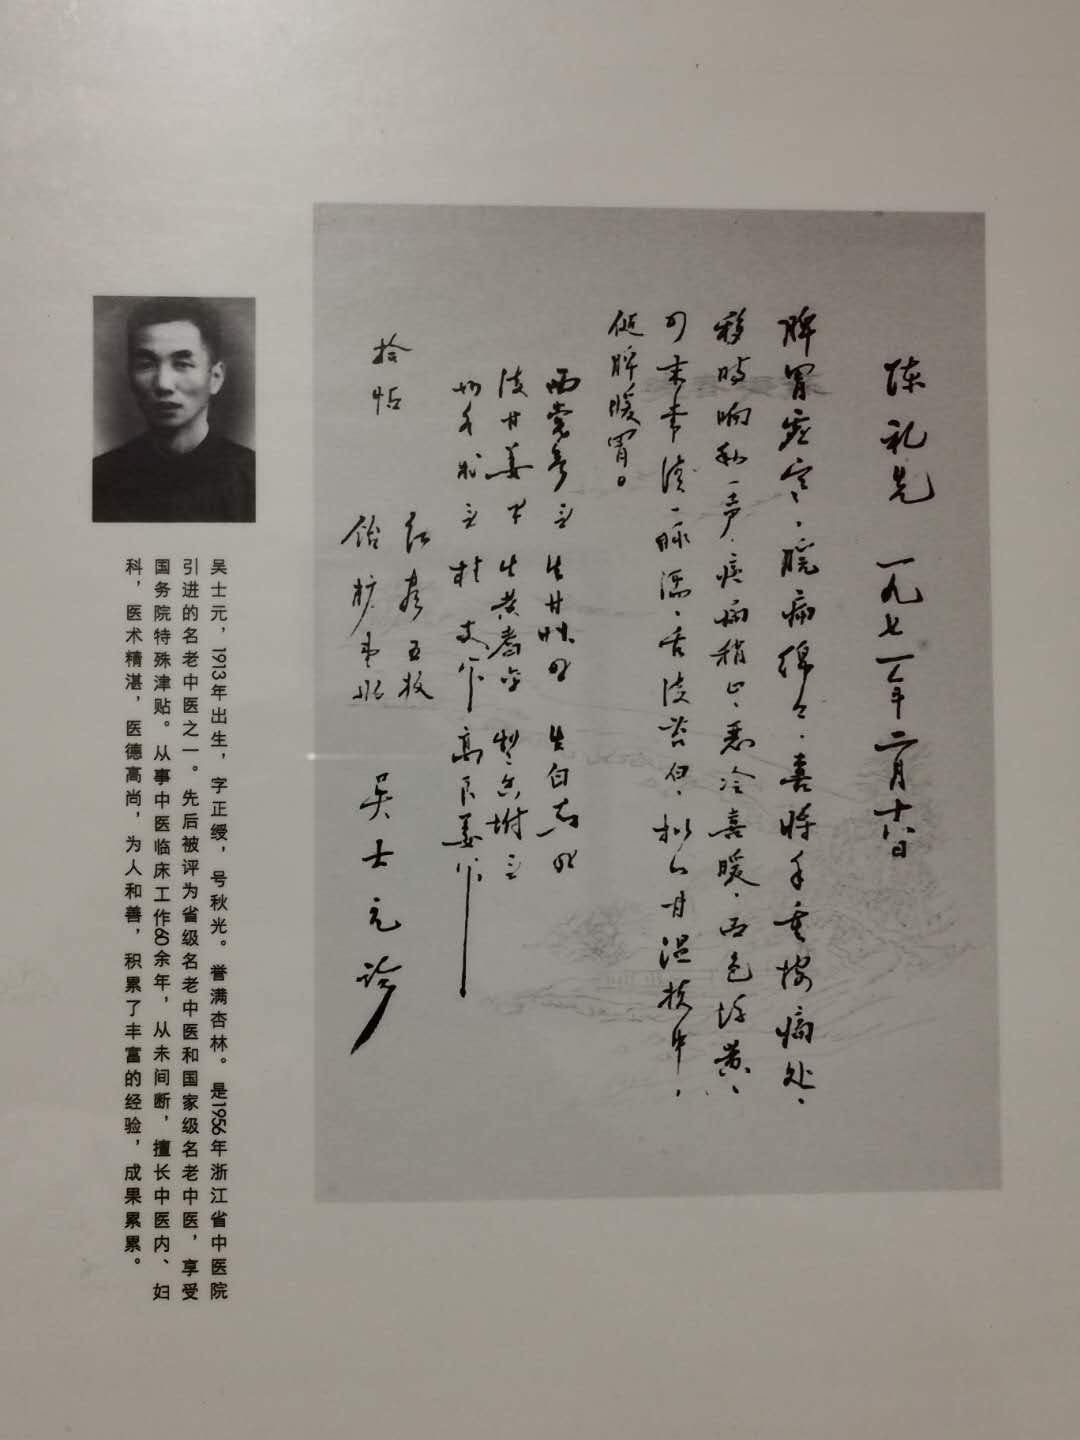 陈礼先 一九七一年二月十八日
脾胃虚寒、脘痛绵々、喜将手重按痛处、
移时响利一声、痞痛稍止、恶冷喜暖、面色浮黄、
脉濡、舌淡苔白、拟以甘温扶中、
健脾暖胃。
西党参 生甘草 生白芍
淡干姜 生黄耆 制香附
炒冬术 桂支 高良姜
拾帖
红枣五枚
吴士元诊
吴士元，1913年出生，字正绶，号秋光。誉满杏林。是1956年浙江省中医院
引进的名老中医之一。先后被评为省级名老中医和国家级名老中医，享受
国务院特殊津贴。从事中医临床工作60余年，从未间断，擅长中医内、妇
科，医术精湛，医德高尚，为人和善，积累了丰富的经验，成果累累。